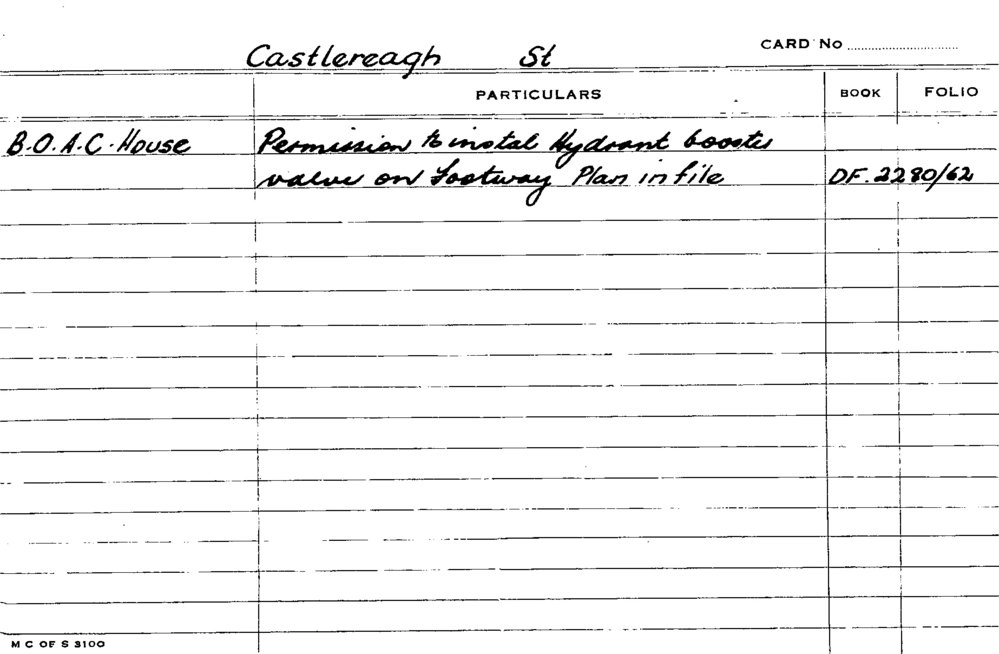 Castlereagh St CARD No
PARTICULARS BOOK FOLIO
B.O.A.C. House Permission to instal Hydrant booster
valve on Footway Plan in file DF. 2280/62
M C OF S 3100